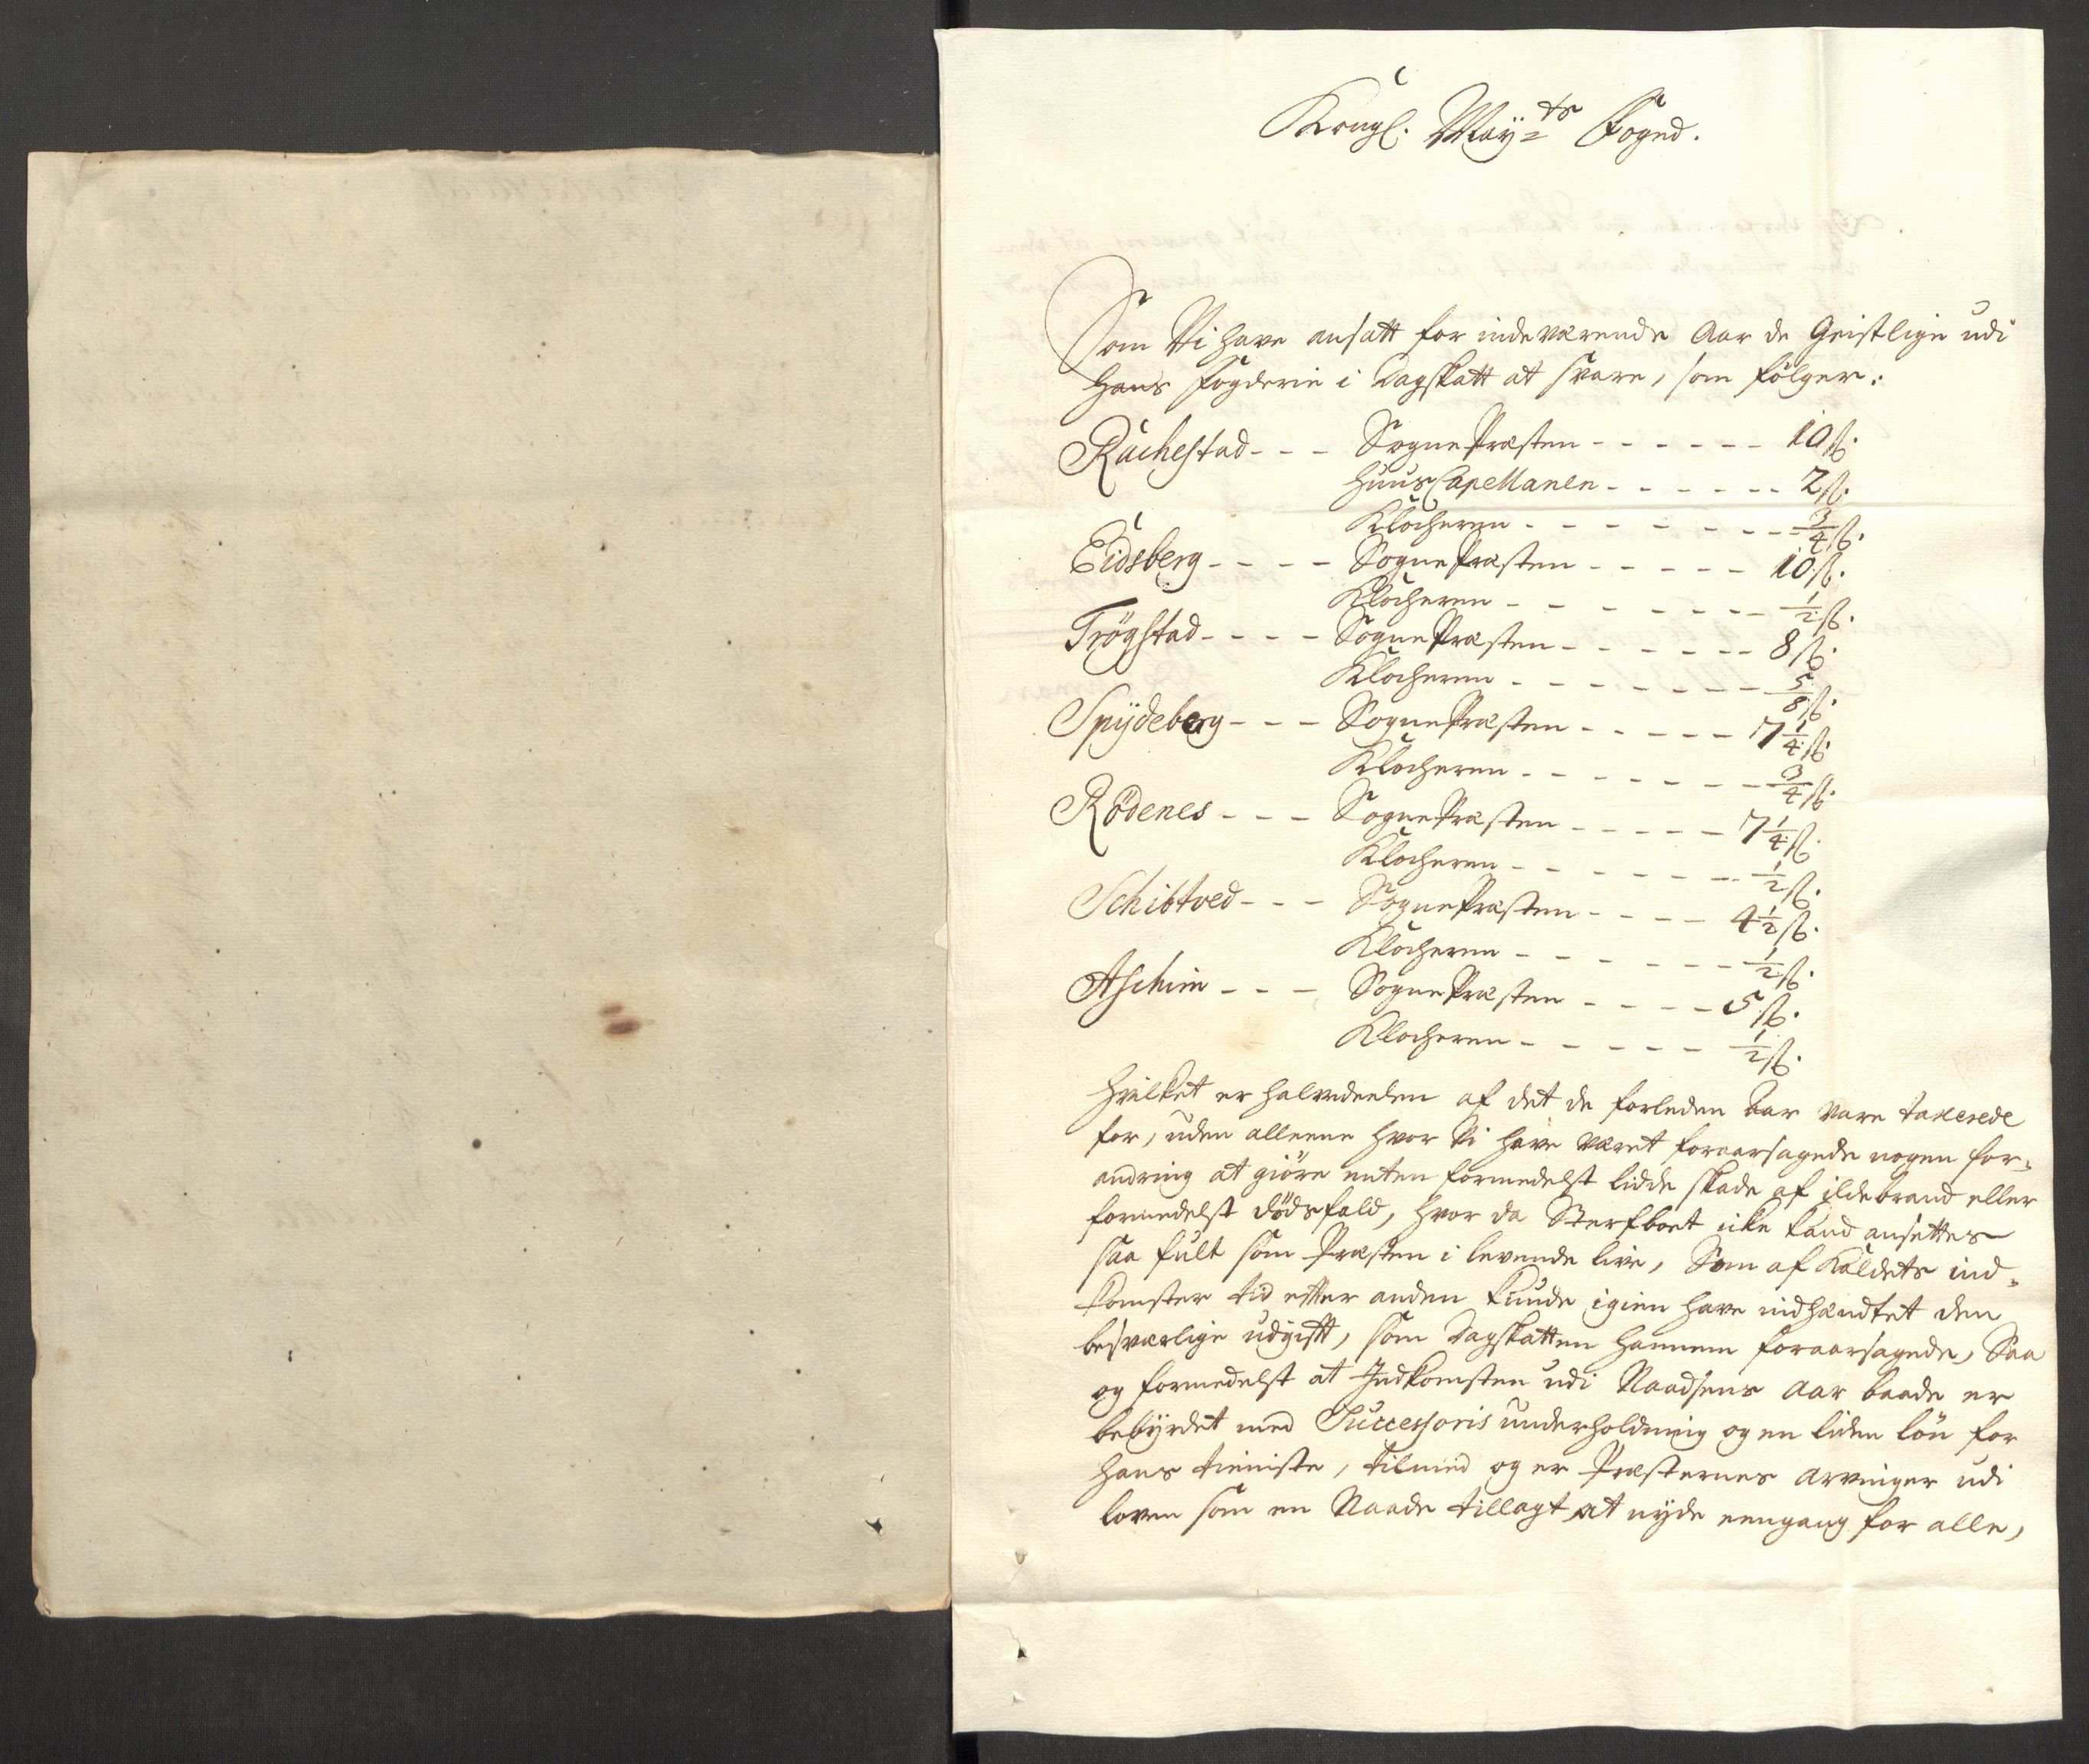 Kongl. Mayts Foged.
Som Vi have ansatt for indeværende Aar de Geistlige udi
hans Fogderie i Dagskatt at svare, som følger:
Rachestad - - - SognePræsten - - - - - - 10 ß.
HuusCapellanen - - - - - - 2 ß.
Klocheren - - - - - - - 3/4 ß.
Eidsberg - - - - SognePræsten - - - - - 10 ß.
Klocheren - - - - - - - 1/2 ß.
Trögstad - - - - SognePræsten - - - - - - 8 ß.
Klocheren - - - - - - - 5/8 ß.
Spÿdeberg - - - SognePræsten - - - - - 7 1/4 ß.
Klocheren - - - - - - - 3/4 ß.
Rödenes - - - SognePræsten - - - - - 7 1/4 ß.
Klocheren - - - - - - - 1/2 ß.
Schibtved - - - SognePræsten - - - - 4 1/2 ß.
Klocheren - - - - - - - 1/2 ß.
Aschim - - - SognePræsten - - - - 5 ß.
Klocheren - - - - - - 1/2 ß.
Hvilket er halvedeelen af det de forleden Aar vare taxerede
for, uden alleene hvor Vi have været foraarsagede nogen for-
andring at giöre enten formedelst lidde skade af ildebrand eller
formedelst dödsfald, hvor da Sterfboet icke kand ansettes
saa fult som Præsten i levende live, Som af Kaldets ind-
komster tid efter anden kunde igien have indhændtet den
besværlige udgift, som Dagskatten hannem foraarsagede, Saa
og formedelst at Indkomsten udi Naadsens Aar baade er
bebÿrdet med Successoris underholdning og en liden lön for
hans tieniste, tilmed og er Præsternes arvinger udi
loven som en Naade tillagt at nyde eengang for alle,